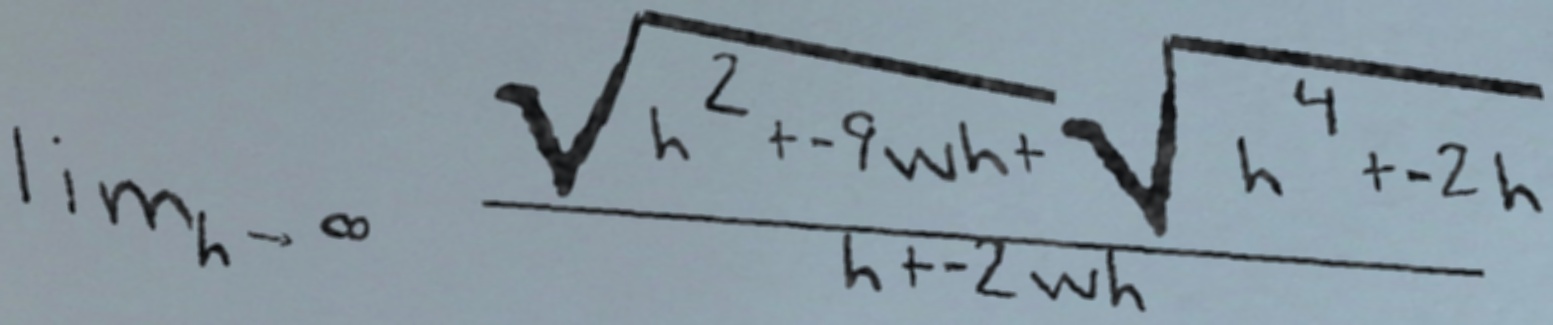 \lim_{h \to \infty} \frac{\sqrt{h^2 + -9wh +} \sqrt{h^4 + -2h}}{h + -2wh}